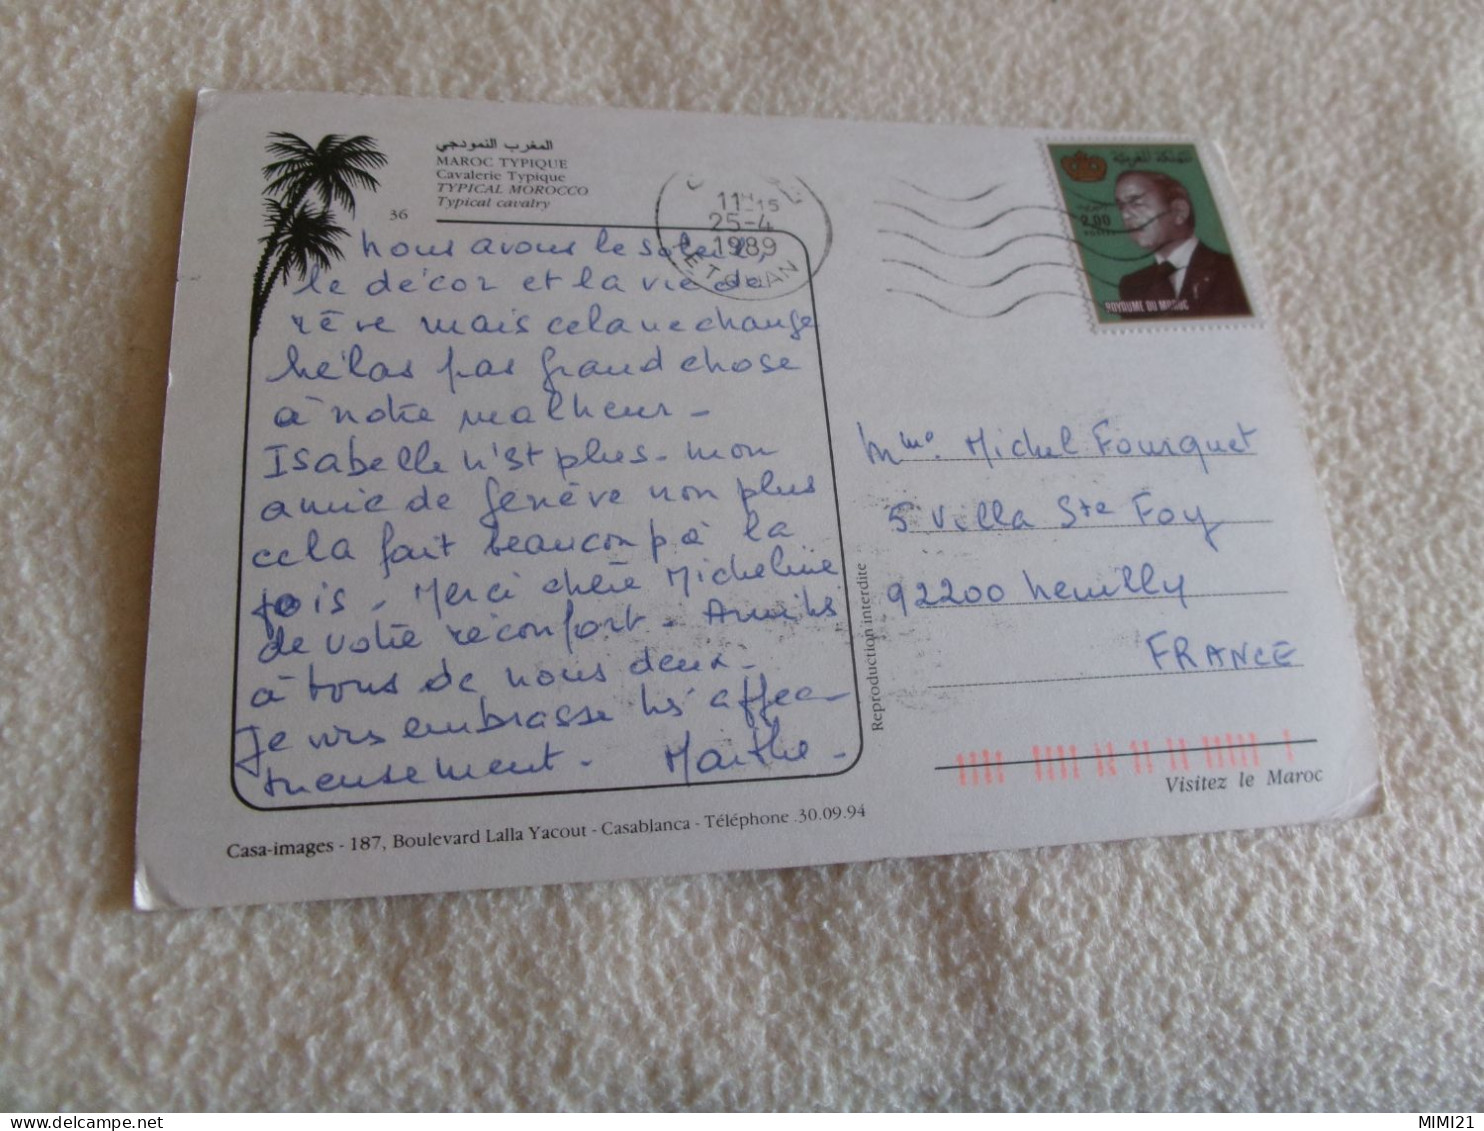 المغرب النمودجي
MAROC TYPIQUE
Cavalerie Typique
TYPICAL MOROCCO
Typical cavalry
36
nous avons le soleil,
le décor et la vie de
rêve mais cela ne change
hélas pas grand chose
à notre malheur -
Isabelle n'est plus - mon
amie de Genève non plus
cela fait beaucoup à la
fois - Merci chère Micheline
de votre réconfort - Amitiés
à tous de nous deux -
Je vous embrasse très affec
tueusement - Marthe -
Casa-images - 187, Boulevard Lalla Yacout - Casablanca - Téléphone 30.09.94
Reproduction interdite
11H15
25-4
1989
TETOUAN
المملكة المغربية
2,00
POSTES
ROYAUME DU MAROC
Mme. Michel Fourquet
5 Villa Ste Foy
92200 Neuilly
FRANCE
Visitez le Maroc
MIMI21